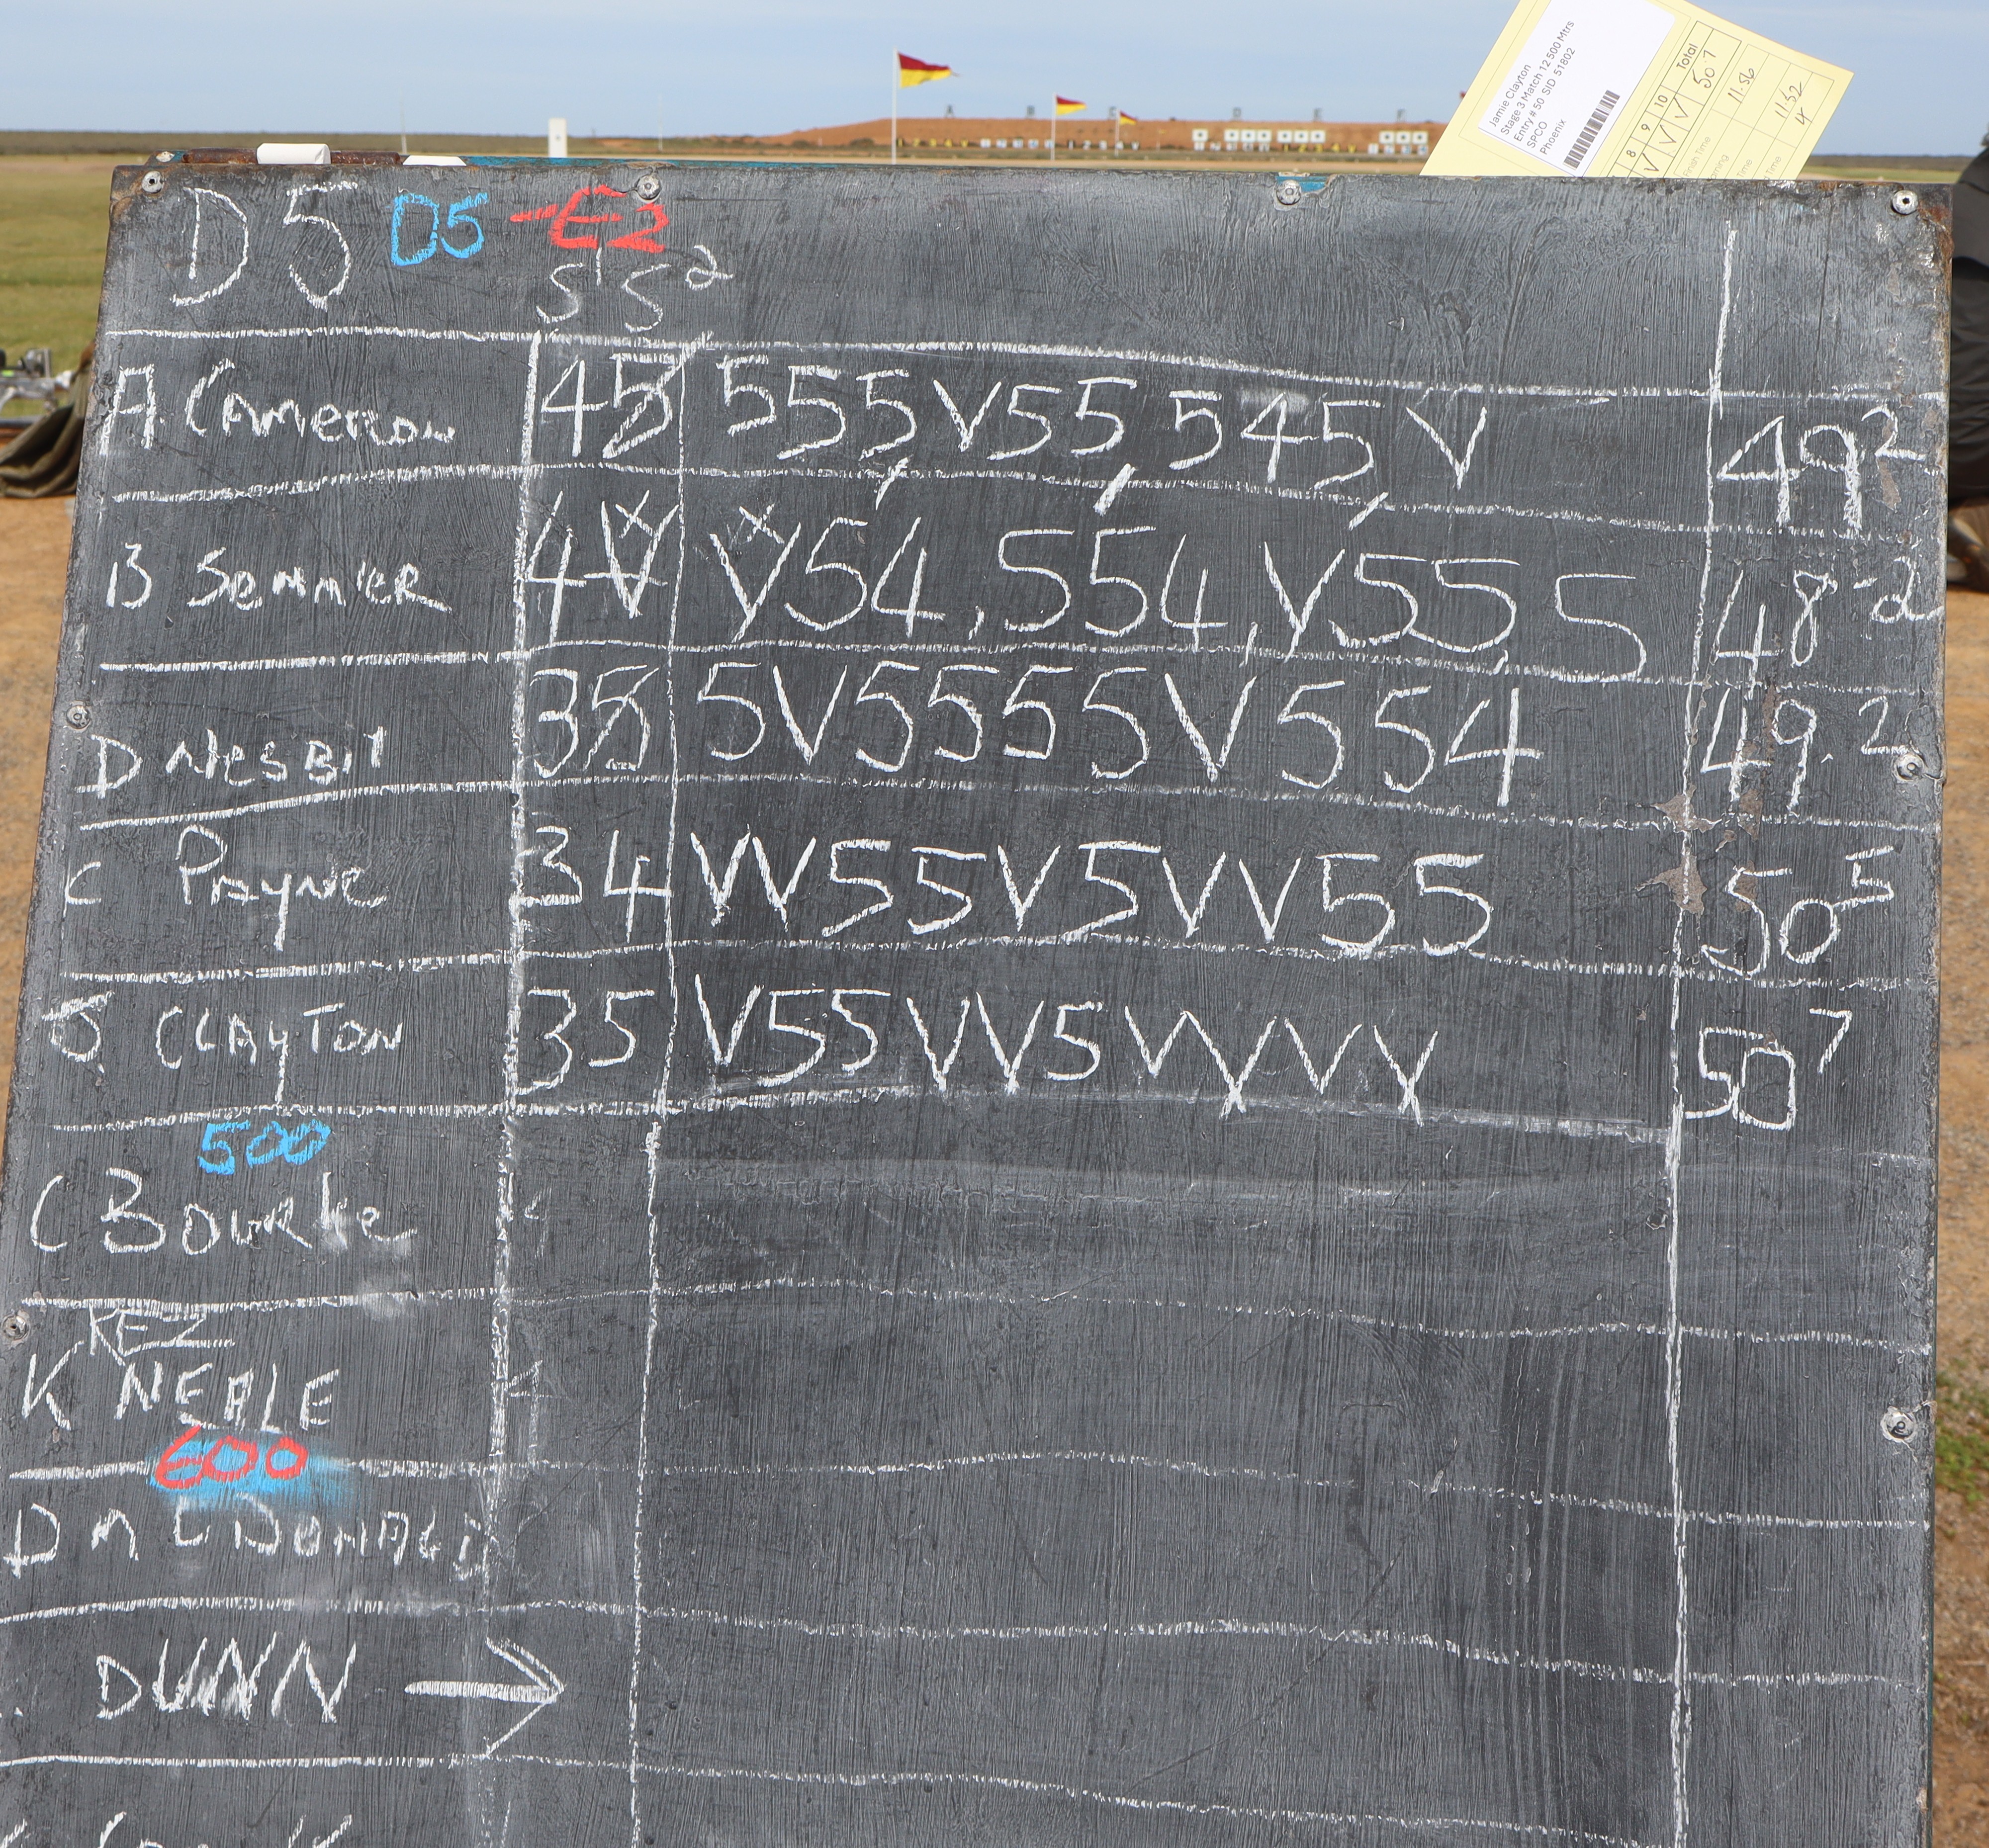 Jamie Clayton
Stage 3 Match 12 500 Mtrs
Entry # 50 SID 51802
SPCO
Phoenix
8 9 10 Total
V V V 50 7
11.56
1152
Time
D5 D5 -E2
S1 S2
A. Cameron 45 555,V55,545,V 49 2
B Semmler 4V V54,554,V55,5 48-2
D Nesbit 35 5V5555V554 49.2
C Payne 34 VV55V5VV55 50 5
J. CLAYTON 35 V55VV5VVVV 50 7
500
C Bourke
KEZ
K NEALE
600
D McDonald
DUNN →